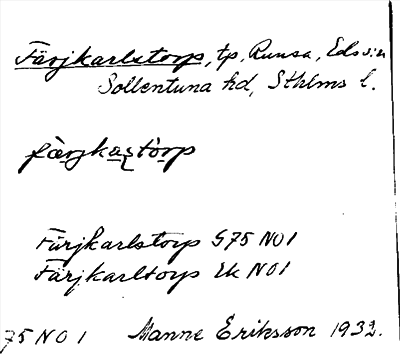 Färjkarlstorp, tp, Runsa, Eds sn
Sollentuna hd, Sthlms l.
fàrjkaștòrp
Färjkarlstorp G75 NO1
Färjkarltorp Ek NO1
75 NO 1 Manne Eriksson 1932.